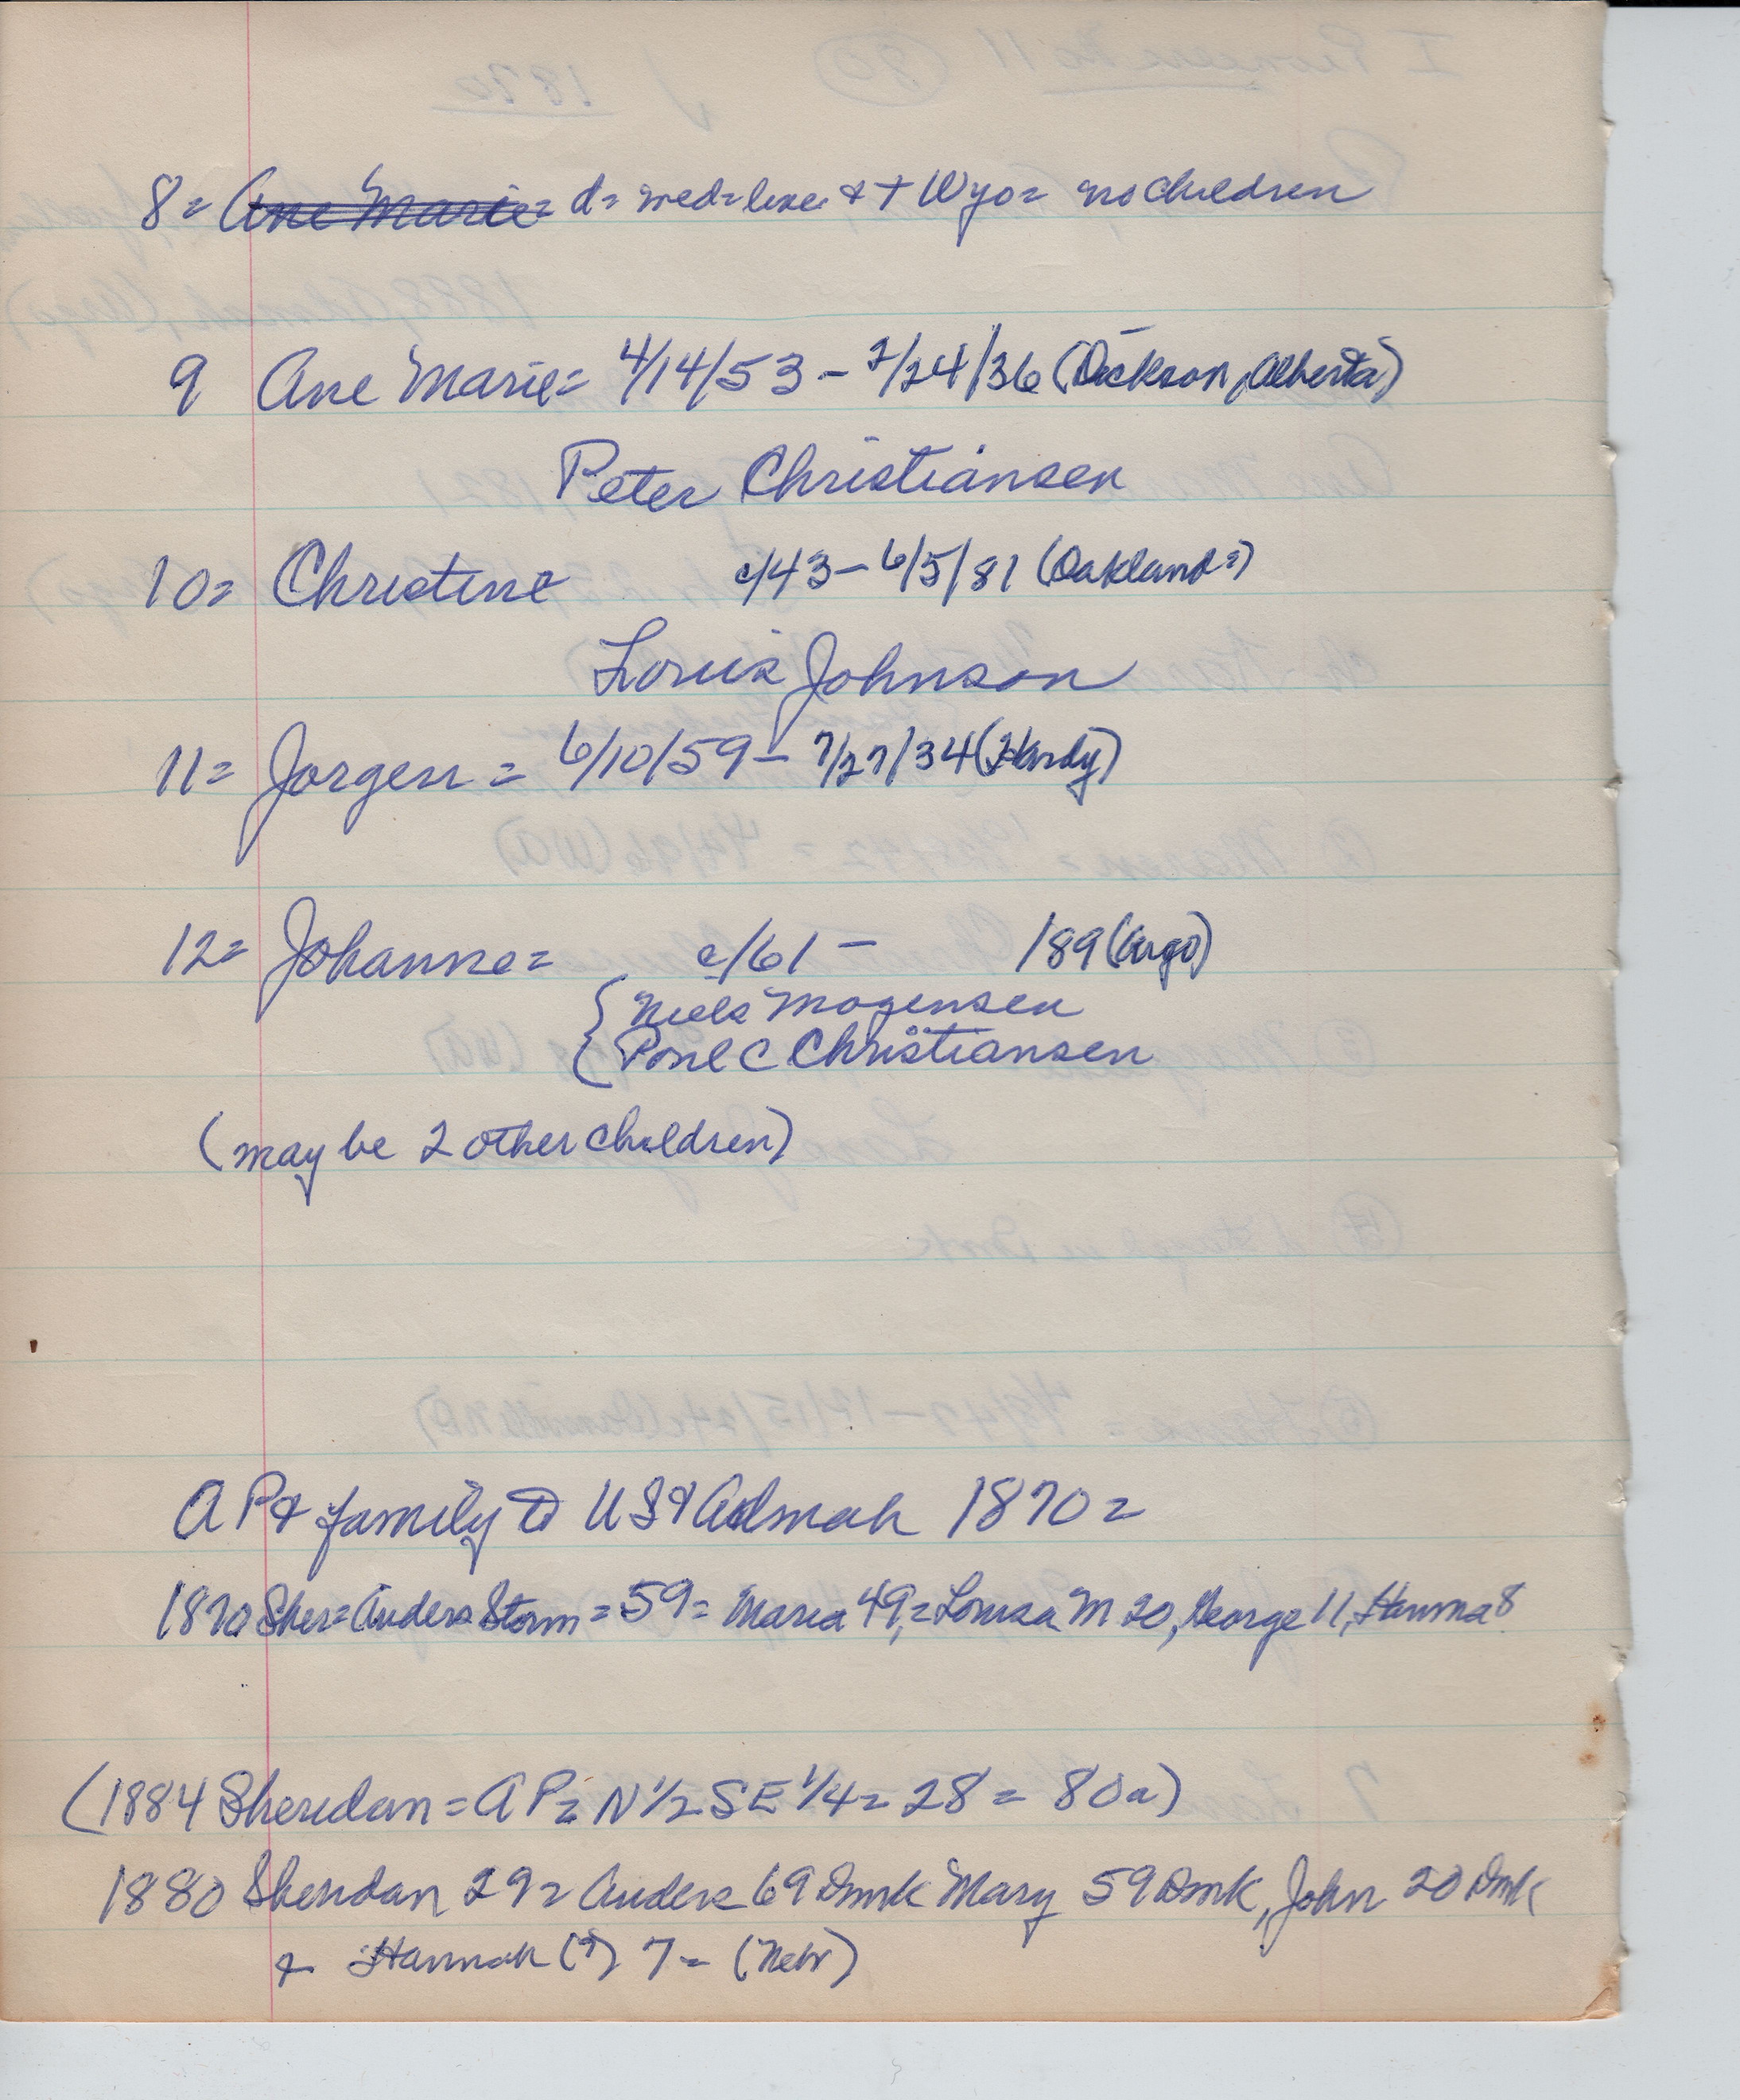 8= Ane Marie= d= med= live & + Wyo= no children
9 Ane Marie= 4/14/53 - 7/24/36 (Dickson, Alberta)
Peter Christiansen
10= Christine c/43 - 6/5/81 (Oakland=)
Louis Johnson
11= Jorgen = 6/10/59 - 7/27/34 (Hardy)
12= Johanne= c/61 - /89 (Argo)
{ Niels Mogensen
{ Poul C Christiansen
(may be 2 other children)
A P & family to US & Admah 1870=
1870 Sher= Anders Storm = 59= Maria 49,= Louisa M 20, George 11, Hanna 8
(1884 Sheridan = A P= N 1/2 SE 1/4= 28 = 80a)
1880 Sheridan 29= Anders 69 Dmk Mary 59 Dmk, John 20 Dmk
& Hannah (?) 7 - (Nebr)